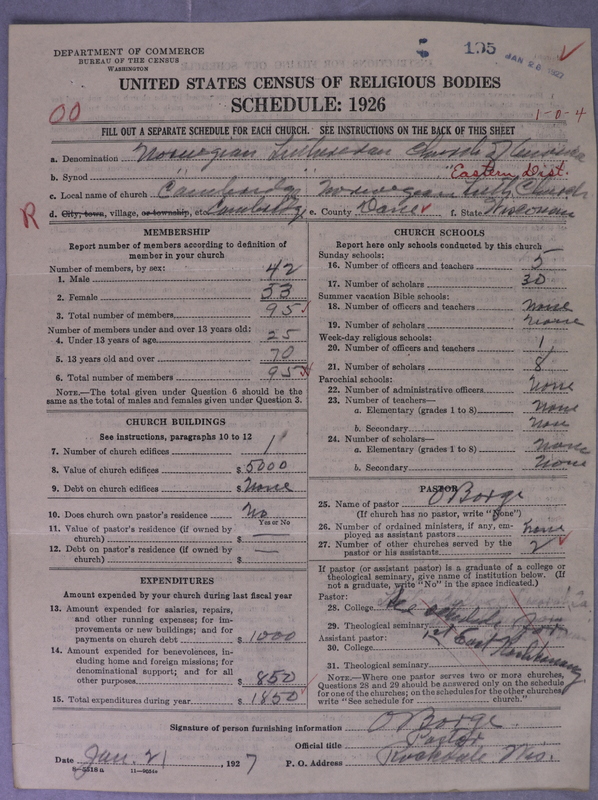 DEPARTMENT OF COMMERCE
BUREAU OF THE CENSUS
WASHINGTON
5 195 JAN 26 1927
UNITED STATES CENSUS OF RELIGIOUS BODIES
SCHEDULE: 1926
00
1-0-4
FILL OUT A SEPARATE SCHEDULE FOR EACH CHURCH. SEE INSTRUCTIONS ON THE BACK OF THIS SHEET
a. Denomination Norwegian Lutheran Church of America
b. Synod " Eastern Dist.
c. Local name of church Cambridge Norwegian Luth. Church
R d. City, town, village, or township, etc. Cambridge e. County Dane f. State Wisconsin
MEMBERSHIP
Report number of members according to definition of member in your church
Number of members, by sex:
1. Male 42
2. Female 53
3. Total number of members 95
Number of members under and over 13 years old:
4. Under 13 years of age 25
5. 13 years old and over 70
6. Total number of members 95
NOTE.—The total given under Question 6 should be the same as the total of males and females given under Question 3.
CHURCH BUILDINGS
See instructions, paragraphs 10 to 12
7. Number of church edifices 1
8. Value of church edifices $ 5000
9. Debt on church edifices $ None
10. Does church own pastor's residence? No
Yes or No
11. Value of pastor's residence (if owned by church) $ —
12. Debt on pastor's residence (if owned by church) $ —
EXPENDITURES
Amount expended by your church during last fiscal year
13. Amount expended for salaries, repairs, and other running expenses; for improvements or new buildings; and for payments on church debt $ 1000
14. Amount expended for benevolences, including home and foreign missions; for denominational support; and for all other purposes $ 850
15. Total expenditures during year $ 1850
CHURCH SCHOOLS
Report here only schools conducted by this church
Sunday schools:
16. Number of officers and teachers 5
17. Number of scholars 30
Summer vacation Bible schools:
18. Number of officers and teachers None
19. Number of scholars None
Week-day religious schools:
20. Number of officers and teachers 1
21. Number of scholars 8
Parochial schools:
22. Number of administrative officers None
23. Number of teachers—
a. Elementary (grades 1 to 8) None
b. Secondary None
24. Number of scholars—
a. Elementary (grades 1 to 8) None
b. Secondary None
PASTOR
25. Name of pastor O Borge
(If church has no pastor, write "None")
26. Number of ordained ministers, if any, employed as assistant pastors None
27. Number of other churches served by the pastor or his assistants 2
If pastor (or assistant pastor) is a graduate of a college or theological seminary, give name of institution below. (If not a graduate, write "No" in the space indicated.)
Pastor:
28. College See
29. Theological seminary schedule for
Assistant pastor: East Koshkonong
30. College
31. Theological seminary
NOTE.—Where one pastor serves two or more churches, Questions 28 and 29 should be answered only on the schedule for one of the churches; on the schedules for the other churches write "See schedule for church."
Signature of person furnishing information O Borge
Official title Pastor
Date Jan. 21, 1927 P. O. Address Rockdale Wis.
8—5518 a 11—9651